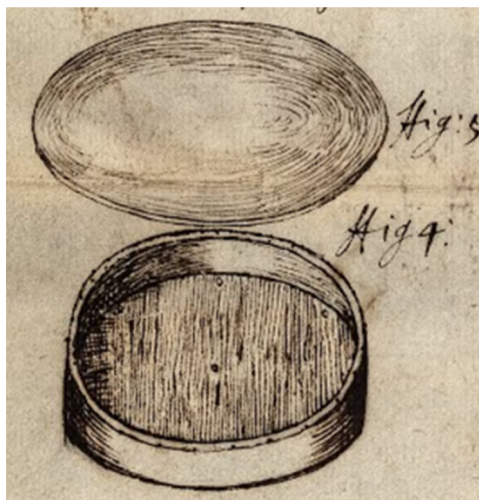 Fig: 5
Fig 4: